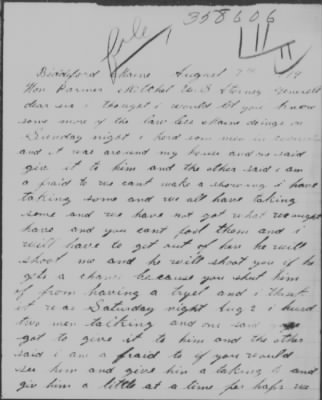 file
358606
Biddeford Maine August 7th 19
Hon Parmer Mitchel U.S Aterney General
dear sir i thought i would let you know
some more of the law less maine doings on
Sunday night i herd som men in
and it was around my house and one said
give it to him and the other said i am
a fraid to we cant make a showing i have
taking some and we all have taking
some and we have not got what we ought
have and you cant fool them and i
will have to get out of here he will
shoot me and he will shoot you if he
gets a chance because you shut him
of from having a tryel and i think
it was Saturday night Aug 2 i herd
two men talking and one said
got to geve it to him and the other
said i am a fraid to if you would
see him and give him a talking to and
giv him a little at a time per haps we